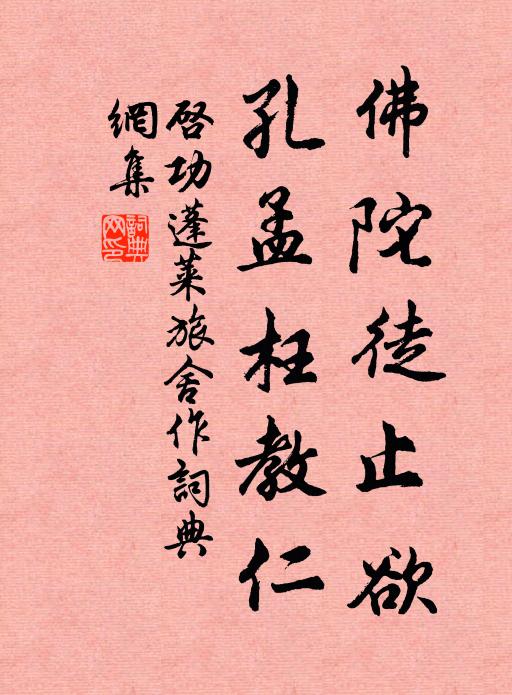 佛陀徒止欲
孔孟枉教仁
啓功蓬萊旅舍作詞典
網集
詞典
网印